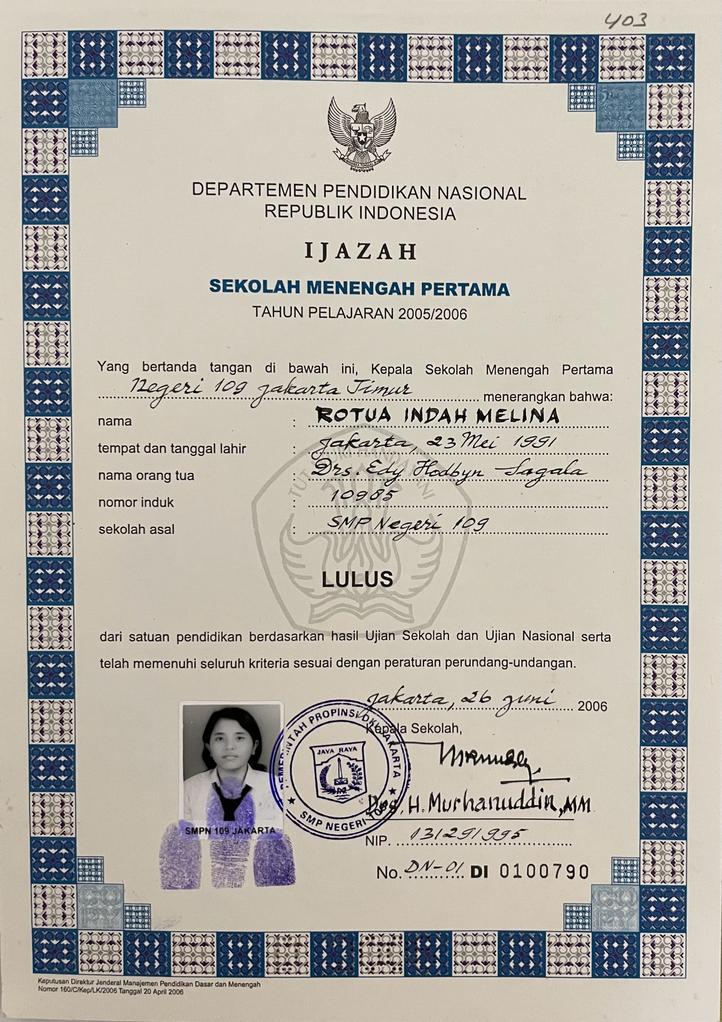 403
DEPARTEMEN PENDIDIKAN NASIONAL
REPUBLIK INDONESIA
IJAZAH
SEKOLAH MENENGAH PERTAMA
TAHUN PELAJARAN 2005/2006
Yang bertanda tangan di bawah ini, Kepala Sekolah Menengah Pertama
Negeri 109 Jakarta Timur menerangkan bahwa:
nama : ROTUA INDAH MELINA
tempat dan tanggal lahir : Jakarta, 23 Mei 1991
nama orang tua : Drs. Edy Hodbyn Sagala
nomor induk : 10985
sekolah asal : SMP Negeri 109
LULUS
dari satuan pendidikan berdasarkan hasil Ujian Sekolah dan Ujian Nasional serta
telah memenuhi seluruh kriteria sesuai dengan peraturan perundang-undangan.
Jakarta, 26 Juni 2006
Kepala Sekolah,
PEMERINTAH PROPINSI DKI JAKARTA
JAYA RAYA
SMP NEGERI
Drs. H. Murhanuddin, MM
SMPN 109 JAKARTA
NIP. 131291995
No. DN-01 DI 0100790
Keputusan Direktur Jenderal Manajemen Pendidikan Dasar dan Menengah
Nomor 160/C/Kep/LK/2006 Tanggal 20 April 2006